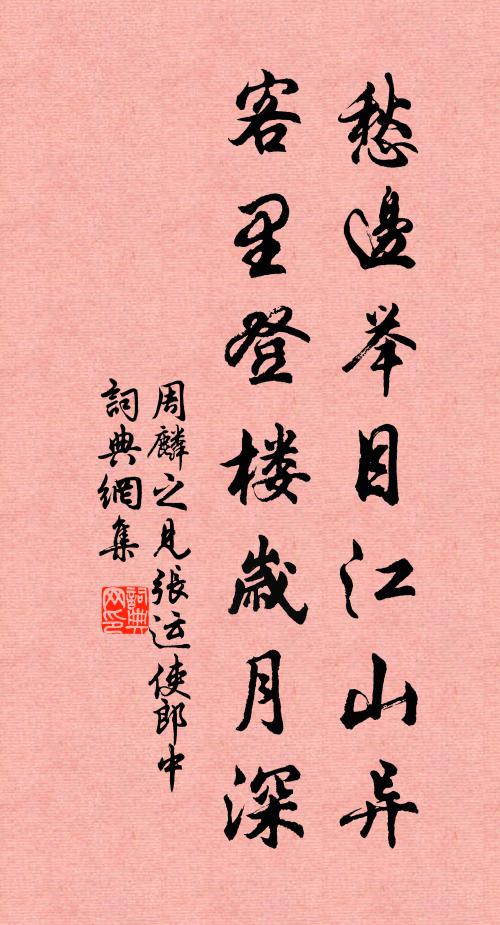 愁邊举目江山异
客里登楼歲月深
周麟之见張运使郎中
詞典網集
詞典网印